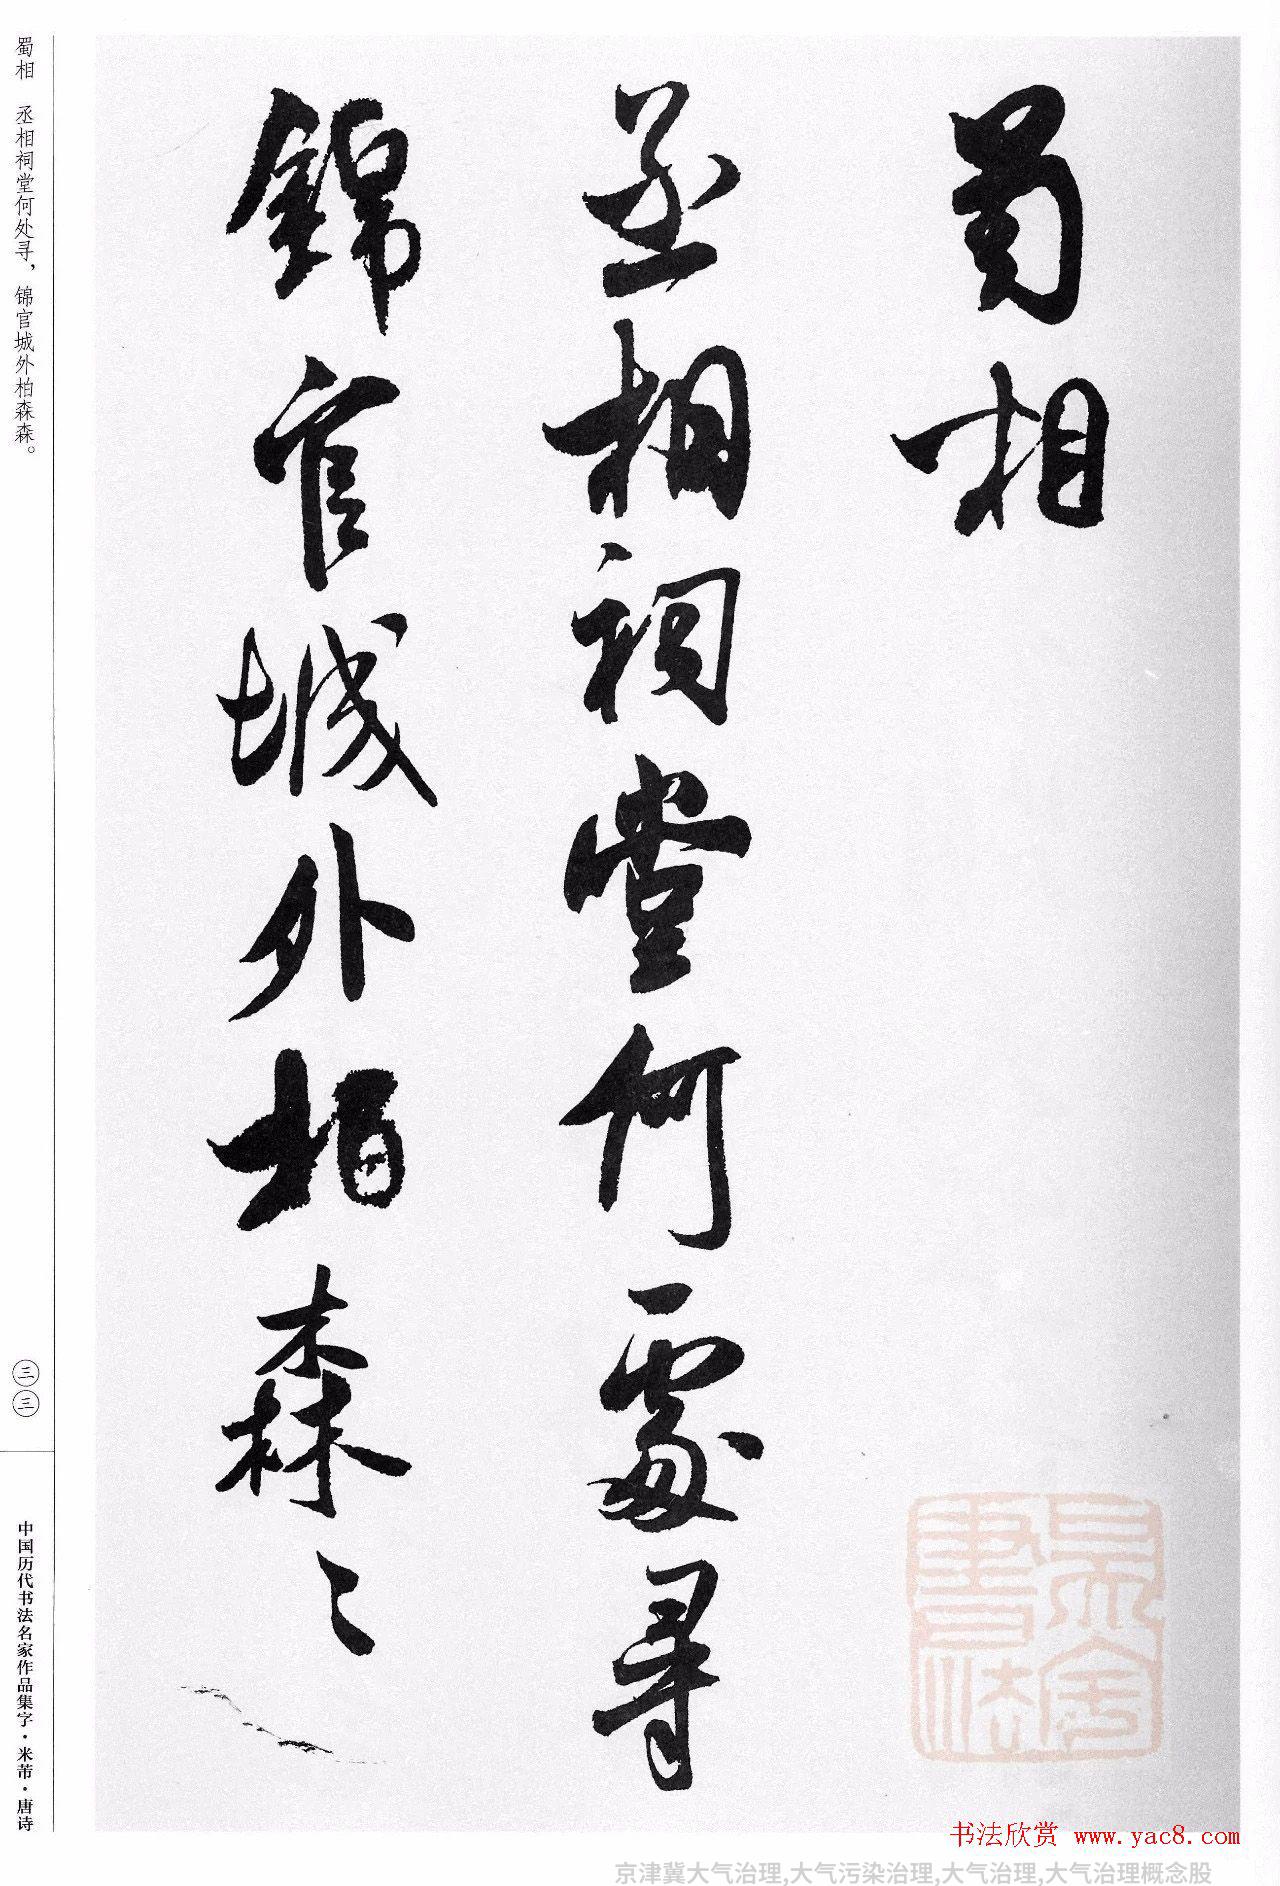 蜀相
丞相祠堂何處尋
錦官城外柏森〻
蜀相 丞相祠堂何处寻，锦官城外柏森森。
三三
中国历代书法名家作品集字·米芾·唐诗
书法欣赏 www.yac8.com
京津冀大气治理,大气污染治理,大气治理,大气治理概念股